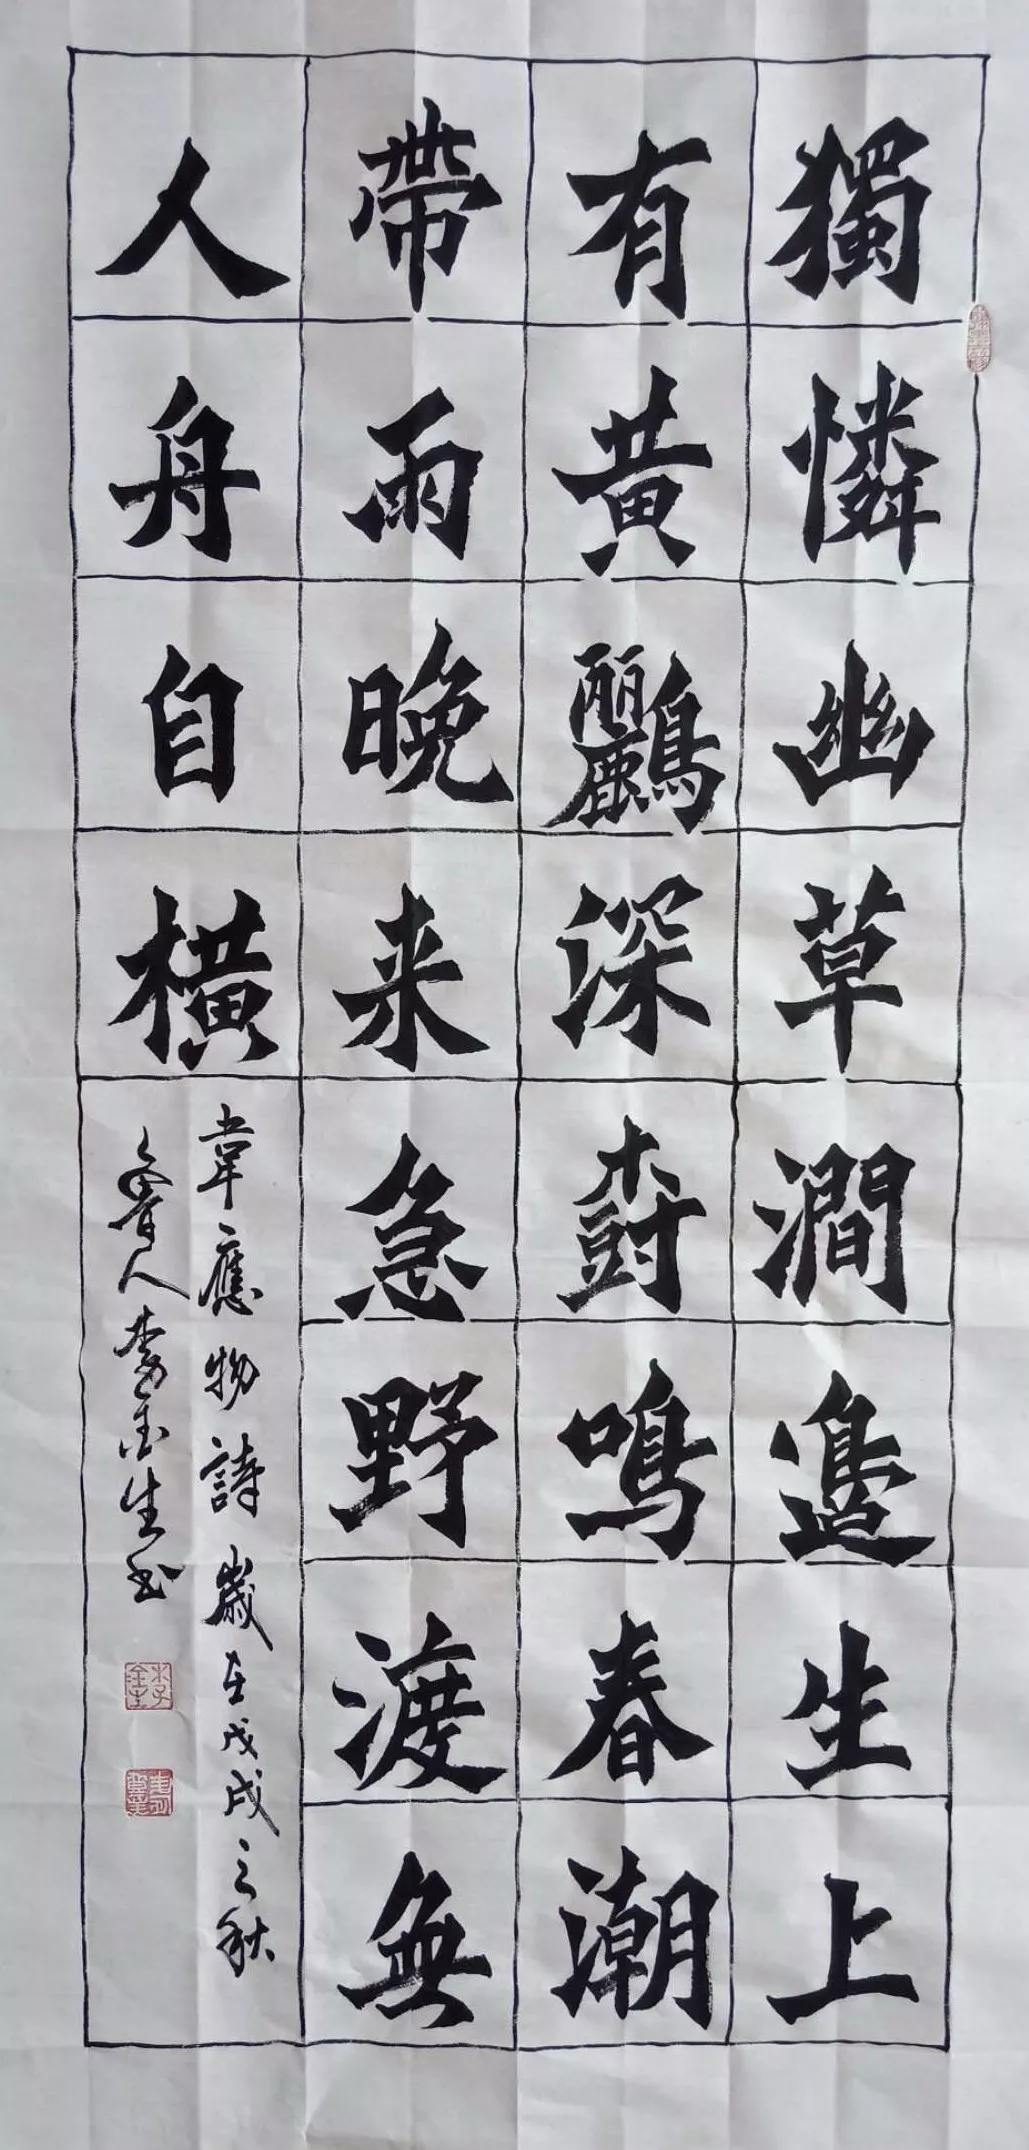 獨憐幽草澗邊生上
有黄鸝深樹鳴春潮
帶雨晚来急野渡無
人舟自横
韋應物詩歲在戊戌之秋
魯人李金生书